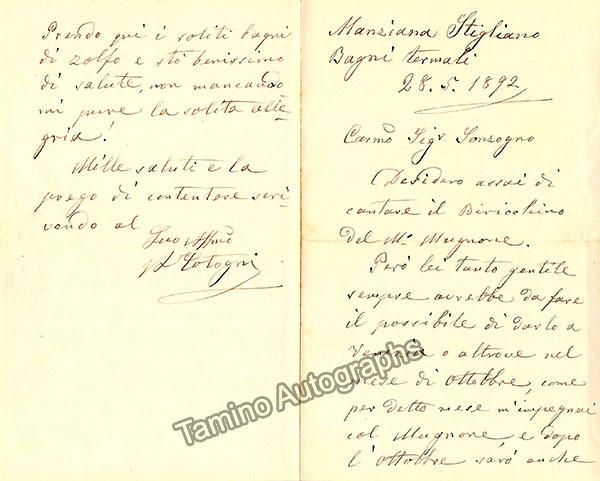 Manziana Stigliano
Bagni termali
28. 5. 1892
Carmo Sigr Sonzogno
Desidero assai di
cantare il Birichino
del Mo Mugnone.
Però lei tanto gentile
sempre avrebbe da fare
il possibile di darlo a
Venezia o altrove nel
mese di Ottobbre, come
per detto mese m'impegnai
col Mugnone, e dopo
l'Ottobbre sarò anche
Prendo qui i soliti bagni
di zolfo e stò benissimo
di salute, non mancando
mi pure la solita alle=
gria!
Mille saluti e la
prego di contentare scri=
vendo al
Suo Affmo
A Cotogni
Tamino Autographs